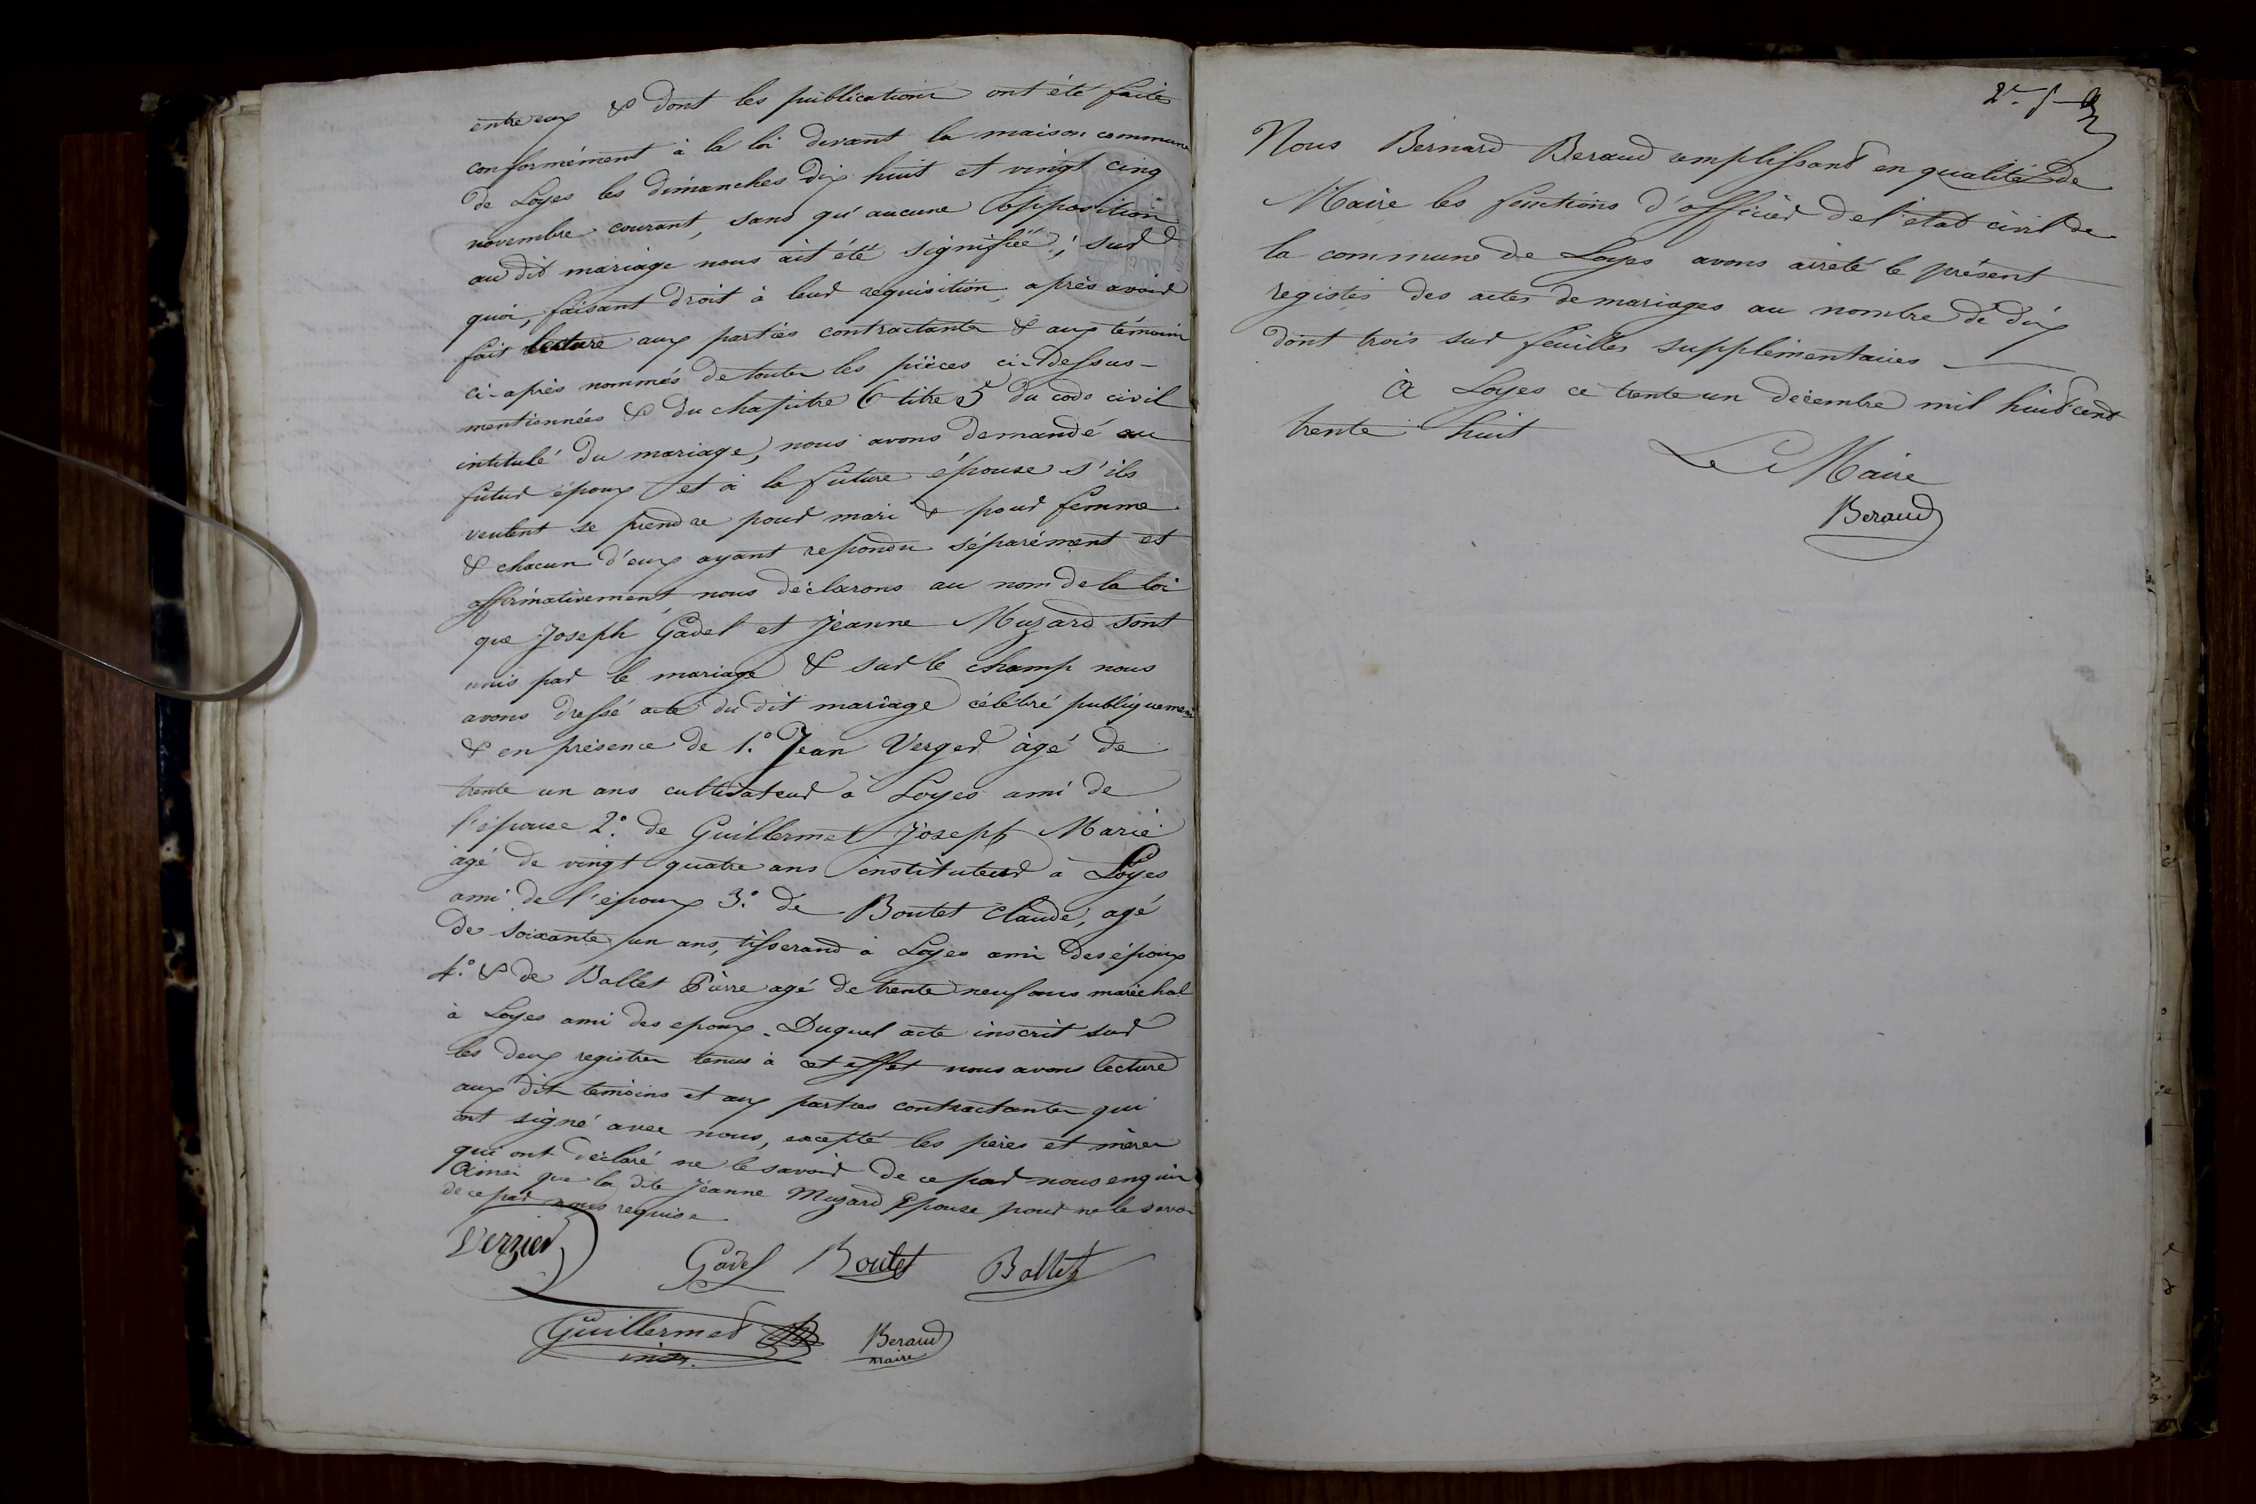 entre eux & dont les publications ont été faites
conformément à la loi devant la maison commune
de Loyes les dimanches dix huit et vingt cinq
novembre courant, sans qu'aucune opposition
au dit mariage nous ait été signifiée; sur
quoi, faisant droit à leur requisition, après avoir
fait lecture aux parties contractantes & aux témoins
ci-après nommés de toutes les pièces ci-dessus
mentionnées & du chapitre 6 titre 5 du code civil
intitulé du mariage, nous avons demandé au
futur époux et à la future épouse s'ils
veulent se prendre pour mari & pour femme
& chacun d'eux ayant repondu séparément et
affirmativement, nous déclarons au nom de la loi
que Joseph Gadel et Jeanne Muzard sont
unis par le mariage & sur le champ nous
avons dressé acte du dit mariage célébré publiquement
& en présence de 1.° Jean Verger âgé de
trente un ans cultivateur à Loyes ami de
l'épouse 2.° de Guillermet Joseph Marie
âgé de vingt quatre ans instituteur à Loyes
ami de l'époux 3.° de Boutet Claude, agé
de soixante un ans, tisserand à Loyes ami des époux
4.° & de Ballet Pierre agé de trente neuf ans maréchal
à Loyes ami des epoux. Duquel acte inscrit sur
les deux registres tenus à cet effet nous avons lecture
aux dit temoins et aux parties contractantes qui
ont signé avec nous, excepté les pères et mères
qui ont déclaré ne le savoir de ce par nous enquis
Ainsi que la dite Jeanne Muzard Epouse pour ne le savoir
de ce par nous requise
Verzier Gadel Boutet Ballet
Guillermet Beraud
inst. maire
2.e f
Nous Bernard Beraud remplissant en qualité de
Maire les fonctions d'officier de l'état civil de
la commune de Loyes avons arrêté le présent
registre des actes de mariages au nombre de dix
dont trois sur feuilles supplémentaires
A Loyes ce trente un décembre mil huit cent
trente huit
Le Maire
Beraud